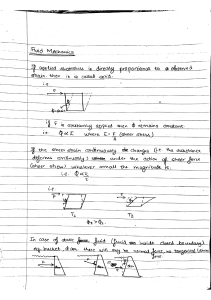 Fluid Mechanics
If applied shear stress is directly proportional to a observed
strain then it is called solid.
i.e
F
if F is continuously applied and θ remains constant
i.e θ α I where I = F/A (shear stress)
If the shear strain continuously changes (i.e. the substance
deforms continuously) under the action of shear force
(shear stress) whatever small the magnitude is.
i.e.
i.e
F
F
T₁
T₂
In case of static fluid (fluid inside closed boundary)
eg. bucket, dam, there will only be normal force, no tangential
force